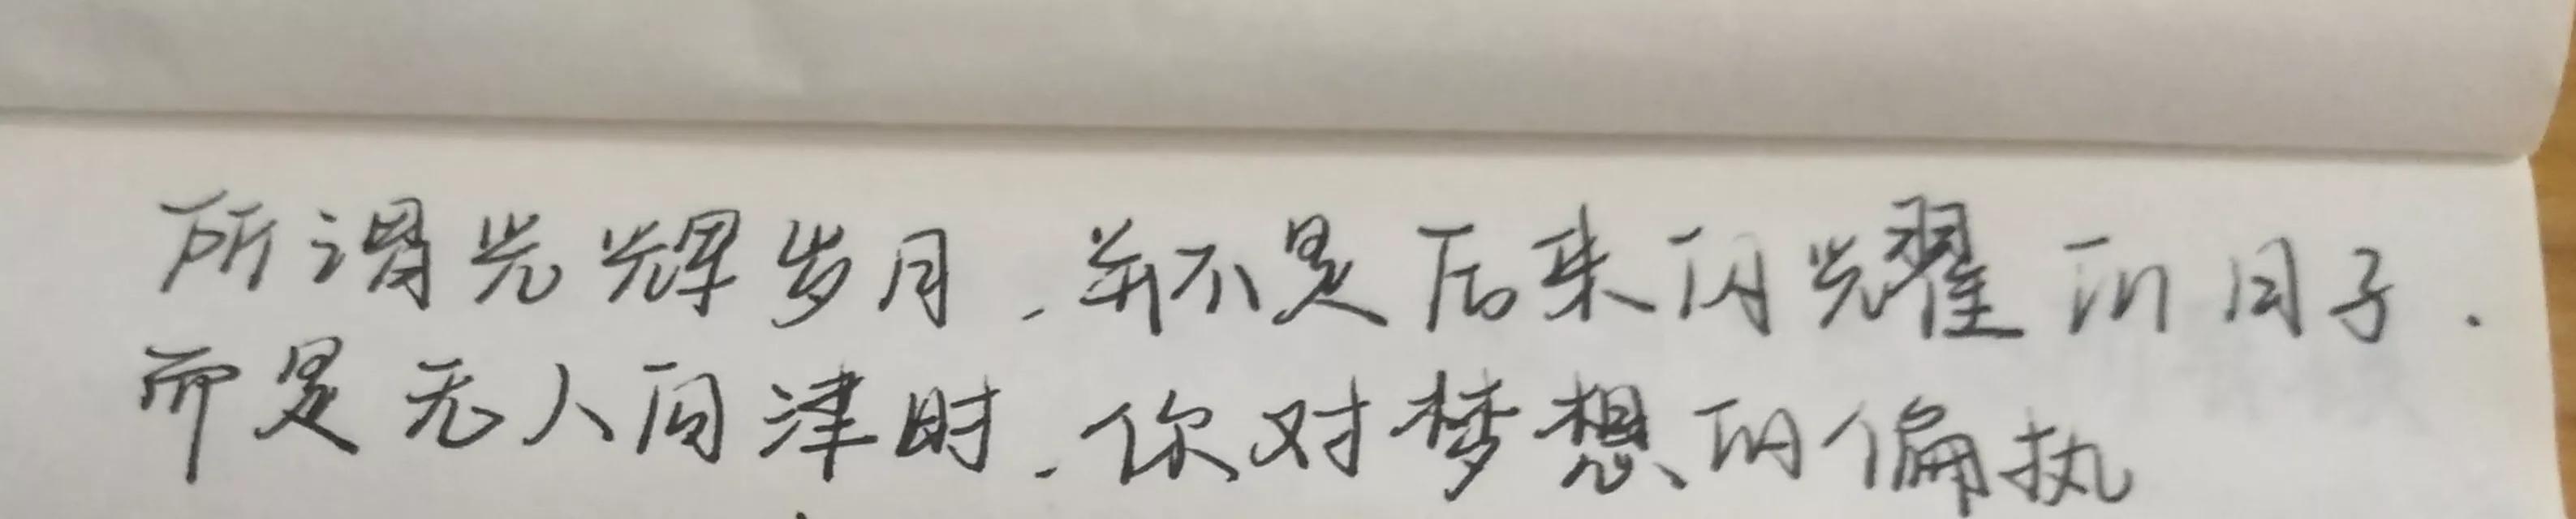 所谓光辉岁月,并不是后来闪耀的日子.
而是无人问津时,你对梦想的偏执